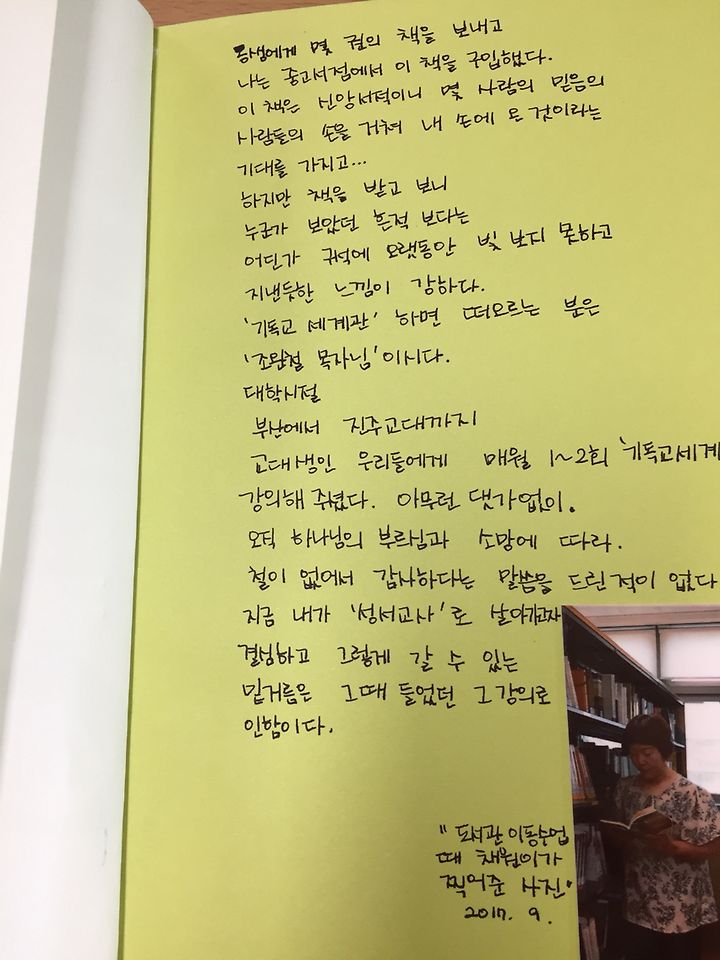 동생에게 몇 권의 책을 보내고
나는 중고서점에서 이 책을 구입했다.
이 책은 신앙서적이니 몇 사람의 믿음의
사람들의 손을 거쳐 내 손에 온 것이라는
기대를 가지고...
하지만 책을 받고 보니
누군가 보았던 흔적 보다는
어딘가 구석에 오랫동안 빛 보지 못하고
지낸듯한 느낌이 강하다.
'기독교 세계관' 하면 떠오르는 분은
'조완철 목자님'이시다.
대학시절
부산에서 진주교대까지
교대생인 우리들에게 매월 1~2회 '기독교세계
강의해 주셨다. 아무런 댓가없이.
오직 하나님의 부르심과 소망에 따라.
철이 없어서 감사하다는 말씀을 드린적이 없다
지금 내가 '성서교사'로 살아가고자
결심하고 그렇게 갈 수 있는
밑거름은 그때 들었던 그 강의로
인함이다.
"도서관 이동수업
때 채원이가
찍어준 사진"
2017. 9.